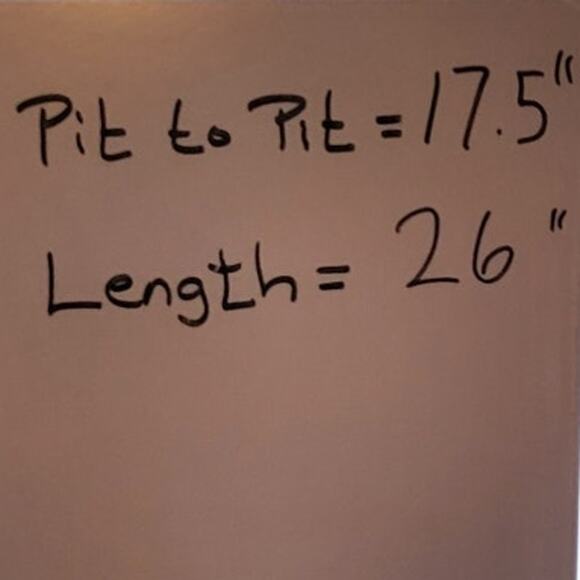 Pit to Pit = 17.5"
Length = 26"